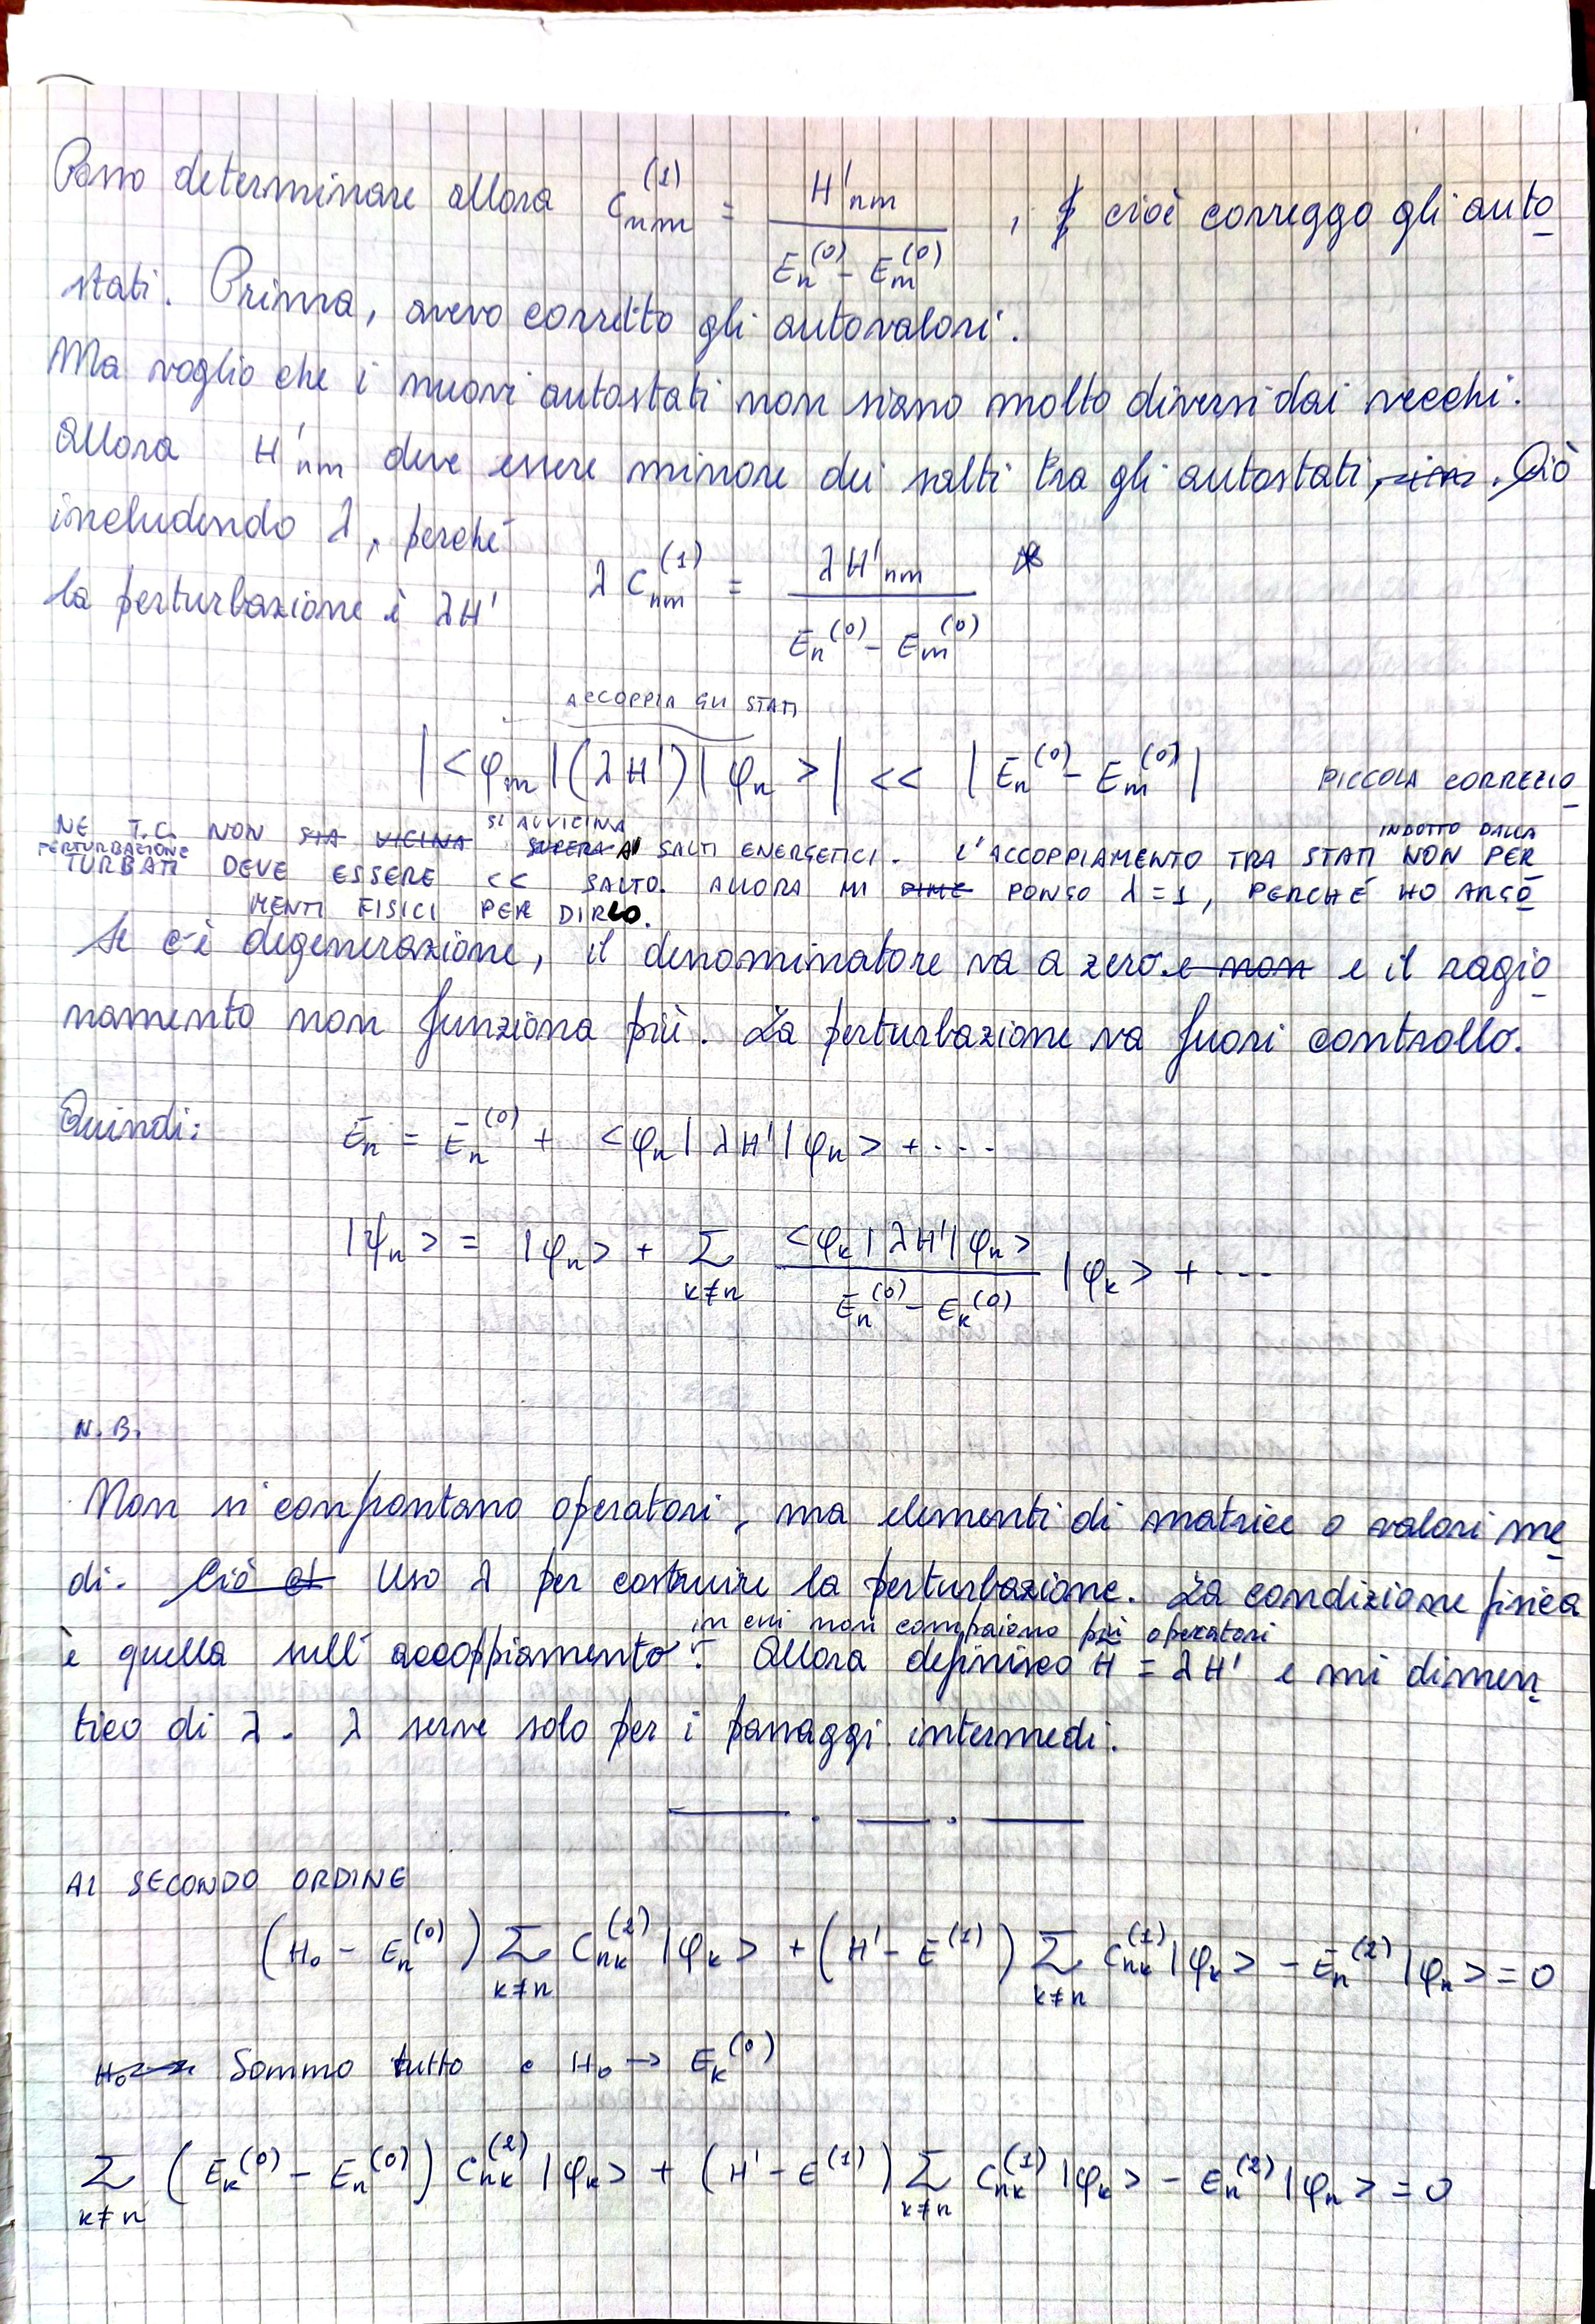 Posso determinare allora C_{nm}^{(1)} = H'_{nm} / (E_n^{(0)} - E_m^{(0)}) , cioè correggo gli auto
stati. Prima, avevo corretto gli autovalori.
Ma voglio che i nuovi autostati non siano molto diversi dai vecchi.
Allora H'_{nm} deve essere minore dei salti tra gli autostati, . Ciò
includendo λ, perché
la perturbazione è λH'
λ C_{nm}^{(1)} = λH'_{nm} / (E_n^{(0)} - E_m^{(0)}) *
ACCOPPIA GLI STATI
|<φ_m|(λH')|φ_n>| << |E_n^{(0)} - E_m^{(0)}| PICCOLA CORREZIO
NE T.C. NON STA VICINA SUPERA SI AVVICINA AI SALTI ENERGETICI. L'ACCOPPIAMENTO TRA STATI NON PER
INDOTTO DALLA PERTURBAZIONE
TURBATI DEVE ESSERE << SALTO. ALLORA MI DIME PONGO λ=1, PERCHÉ HO ARGO
MENTI FISICI PER DIRLO.
Se c'è degenerazione, il denominatore va a zero e non e il ragio
namento non funziona più. La perturbazione va fuori controllo.
Quindi: E_n = E_n^{(0)} + <φ_n|λH'|φ_n> + ....
|ψ_n> = |φ_n> + Σ_{k≠n} <φ_k|λH'|φ_n> / (E_n^{(0)} - E_k^{(0)}) |φ_k> + ....
N.B.
Non si confrontano operatori, ma elementi di matrice o valori me
di. Ciò Uso λ per costruire la perturbazione. La condizione fisica
in cui non compaiono più operatori
è quella sull'accoppiamento. Allora definisco H̃ = λH' e mi dimen
tico di λ. λ serve solo per i passaggi intermedi.
AL SECONDO ORDINE
(H_0 - E_n^{(0)}) Σ_{k≠n} C_{nk}^{(2)} |φ_k> + (H' - E^{(1)}) Σ_{k≠n} C_{nk}^{(1)} |φ_k> - E_n^{(2)} |φ_n> = 0
H_0 Sommo tutto e H_0 → E_k^{(0)}
Σ_{k≠n} (E_k^{(0)} - E_n^{(0)}) C_{nk}^{(2)} |φ_k> + (H' - E^{(1)}) Σ_{k≠n} C_{nk}^{(1)} |φ_k> - E_n^{(2)} |φ_n> = 0